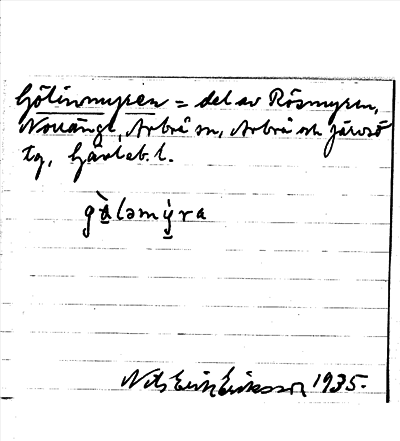 Gölinmyren = del av Rösmyren,
Norrängt, Arbrå sn, Arbrå och Järvsö
tg, Gävleb. l.
gàləmýra
Nils Erik Eriksson 1935.